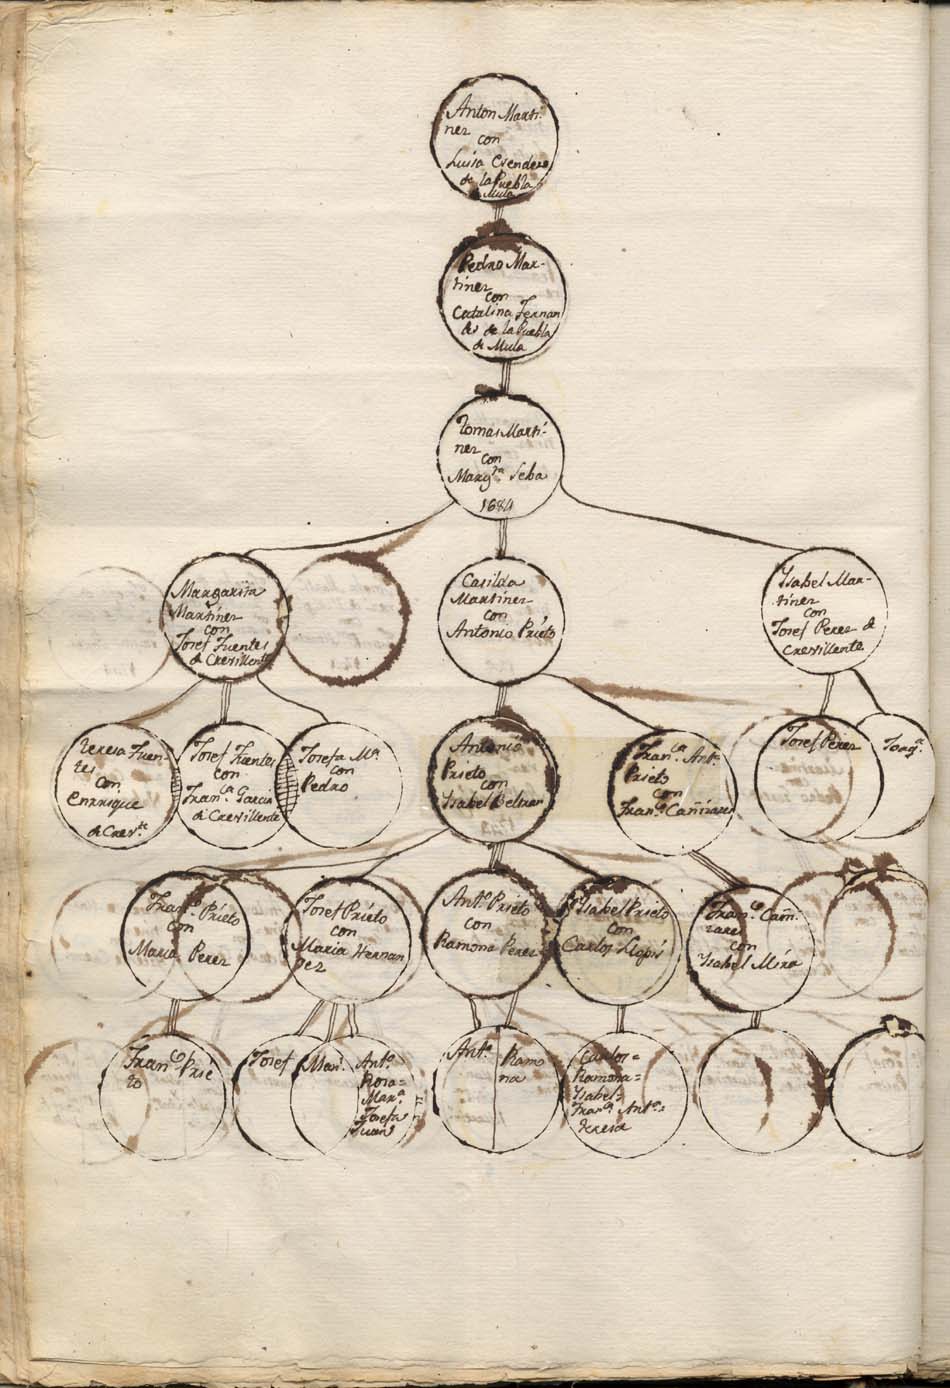 Anton Marti-
nez
con
Luisa Esendero
de la Puebla
Mula
Pedro Mar-
tinez
con
Catalina Fernan
dez de la Puebla
de Mula
Tomas Marti-
nez
con
Marg.ta Seba
1684
Margarita
Martinez
con
Josef Fuentes
de Crevillente
Casilda
Martinez
con
Antonio Prieto
Ysabel Mar-
tinez
con
Josef Perez de
Crevillente
Teresa Fuen-
tes
con
Enrrique
de Crev.te
Josef Fuentes
con
Fran.ca Garcia
de Crevillente
Josefa M.a
con
Pedro
Antonio
Prieto
con
Ysabel Beltran
Fran.ca Ant.a
Prieto
con
Fran.co Cañizares
Josef Perez
Fran.co Prieto
con
Maria Perez
Josef Prieto
con
Maria Hernan
dez
Ant.o Prieto
con
Ramona Perez
Ysabel Prieto
con
Carlos Llopis
Fran.co Cañi-
zares
con
Ysabel Mira
Fran.co Prie
to
Josef
Man.l
Ant.o
Rosa=
Mar.a
Josefa
Juan
Ant.o
Ramo
na
Carlos=
Ramona=
Ysabel=
Fran.ca Ant.a=
Teresa